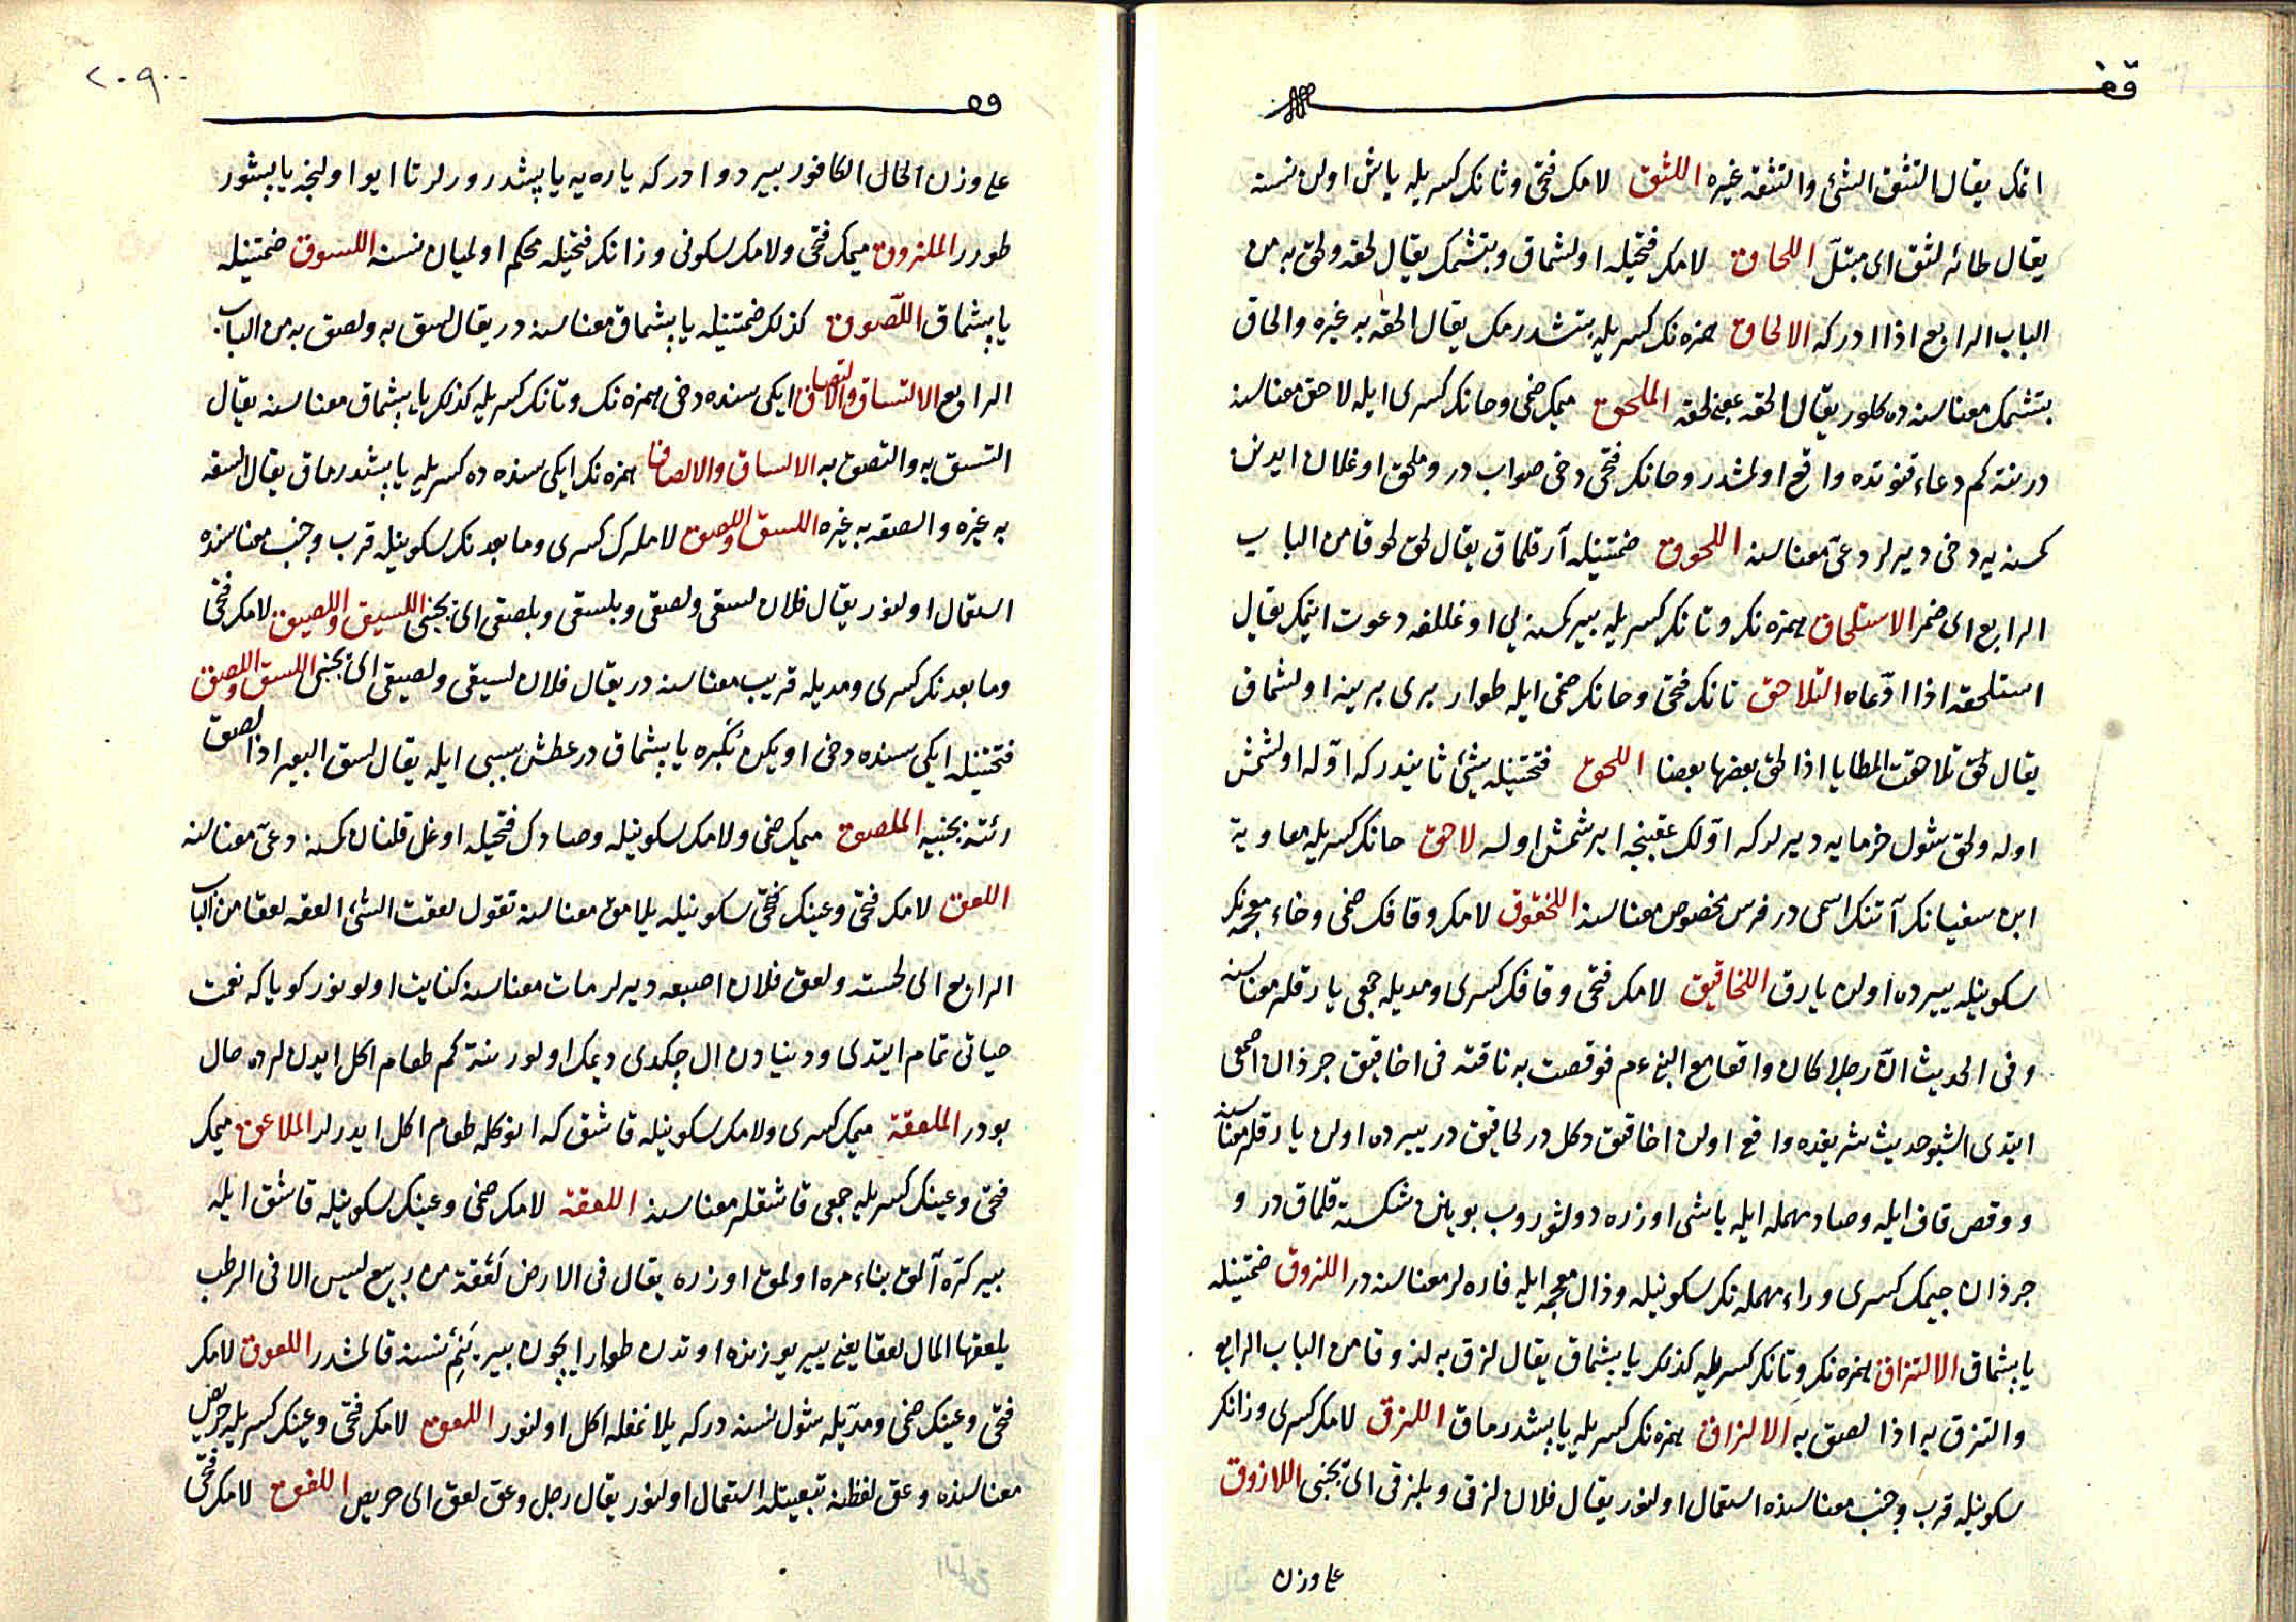 قف
اتمك يقال التثق الشئ والتثقه غيره اللثق لامك فتحى وثانك كسريله ياش اولن نسنه
يقال طائر لثق اى مبتلّ اللحاق لامك فتحيله اولشماق ويتشمك يقال لحقه ولحق به من
الباب الرابع اذا ادركه الالحاق همزه نك كسريله يتشدرمك يقال الحقه به غيره والحاق
يتشمك معناسنه ده كلور يقال الحقه بمعنى لحقه الملحق ميمك ضمى وحانك كسرى ايله لاحق معناسنه
در نته كم دعاء قنوتده واقع اولمشدر وحانك فتحى دخى صواب در وملحق اوغلان ايدنن
كمسنه يه دخى ديرلر دعىّ معناسنه اللحوق ضمتينله آرقلماق يقال لحق لحوقا من الباب
الرابع اى ضمر الاستلحاق همزه نك وتانك كسريله بير كمسنه يى اوغللغه دعوت ايتمك يقال
استلحقه اذا ادّعاه التلاحق تانك فتحى وحانك ضمى ايله طوار برى برينه اولشماق
يقال لحق تلاحقت المطايا اذا لحق بعضها بعضا اللحق فتحتينله شئ ثانيدر كه اوّله اولشمش
اوله ولحق شول خرمايه ديرلر كه اوّلك عقبنجه ايرشمش اوله لاحق حانك كسريله معاوية
ابن سفيانك آتنك اسمى در فرس مخصوص معناسنه اللخقوق لامك وقافك ضمى وخاء معجمه نك
سكونيله ييرده اولن يارق اللخاقيق لامك فتحى وقافك كسرى ومديله جمعى يارقلر معناسنه
وفى الحديث انّ رجلا كان واقفا مع النبى ءم فوقصت به ناقته فى اخاقيق جرذان اصمعى
ايتدى اشبو حديث شريفده واقع اولن اخاقيق دكل در لخاقيق در ييرده اولن يارقلر معناسنه
ووقص قاف ايله وصاد مهمله ايله باشى اوزره دوشوروب بوينن شكسته قلماق در و
جرذان جيمك كسرى وراء مهمله نك سكونيله وذال معجمه ايله فاره لر معناسنه در اللزوق ضمتينله
يابشماق الالتزاق همزه نك وتانك كسريله كذلك يابشماق يقال لزق به لزوقا من الباب الرابع
والتزق به اذا لصق به الالزاق همزه نك كسريله يابشدرماق اللزق لامك كسرى وزانك
سكونيله قرب وجنب معناسنده استعمال اولنور يقال فلان لزقى وبلزقى اى بجنبى اللازوق
على وزن
٢٠٩٠٠
على وزن الحال الكافور بير دوادر كه ياره يه يابشدرورلر تا ايو اولنجه يابشور
طورر الملزوق ميمك فتحى ولامك سكونى وزانك فتحيله محكم اولميان نسنه اللسوق ضمتينله
يابشماق اللّصوق كذلك ضمتينله يابشماق معناسنه در يقال لسق به ولصق به من الباب
الرابع الالتساق والالتصاق ايكى سنده دخى همزه نك وتانك كسريله كذلك يابشماق معناسنه يقال
التسق به والتصق به الالساق والالصاق همزه نك ايكى سنده ده كسريله يابشدرماق يقال السقه
به غيره والصقه به غيره اللسق واللصق لاملرك كسرى وما بعدنك سكونيله قرب وجنب معناسنده
استعمال اولنور يقال فلان لسقى ولصقى وبلسقى وبلصقى اى بجنبى اللسيق واللصيق لامك فتحى
وما بعدنك كسرى ومديله قريب معناسنه در يقال فلان لسيقى ولصيقى اى بجنبى اللسق واللصق
فتحتينله ايكى سنده دخى اويكن بُكبره يابشماق در عطش سببى ايله يقال لسق البعير اذا لصق
رئته بجنبيه الملصق ميمك ضمى ولامك سكونيله وصادك فتحيله اوغل قلنان كمسنه دعىّ معناسنه
اللعق لامك فتحى وعينك سكونيله يلامق معناسنه تقول لعقت الشئ العقه لعقا من الباب
الرابع اى لحسته ولعق فلان اصبعه ديرلر مات معناسنه كنايت اولونور كوياكه نعمت
حياتى تمام ايتدى ودنيادن ال چكدى ديمك اولور نته كم طعام اكل ايدنلرده حال
بودر الملعقة ميمك كسرى ولامك سكونيله قاشق كه انوكله طعام اكل ايدرلر الملاعق ميمك
فتحى وعينك كسريله جمعى قاشقلر معناسنه اللعقة لامك ضمى وعينك سكونيله قاشق ايله
بير كرّه آلمق بناء مره اولمق اوزره يقال فى الارض لعْقة من ربيع ليس الا فى الرطب
يلعقها المال لعقا يعنى يير يوزنده اوتدن طوار ايچون بير يَنِمْ نسنه قالمشدر اللعوق لامك
فتحى وعينك ضمى ومدّيله شول نسنه در كه يلانمغله اكل اولنور اللعق لامك فتحى وعينك كسريله حريص
معناسنده وعق لفظنه تبعيتله استعمال اولنور يقال رجل وعق لعق اى حريص اللفق لامك فتحى